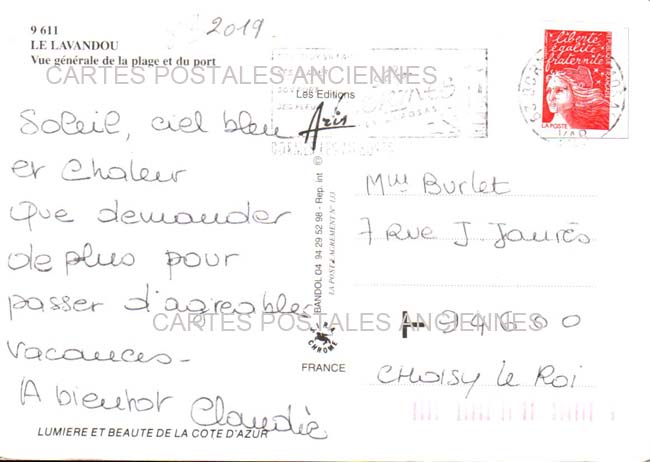 9 611
LE LAVANDOU
Vue générale de la plage et du port
2019
liberté
égalité
fraternité
LA POSTE
CARTES POSTALES ANCIENNES
Les Editions
Aris
Soleil, ciel bleu
et Chaleur
Que demander
de plus pour
passer d'agreables
vacances-
A bientot Claudie
BANDOL 04 94 29 52 98 - Rep. int ©
LA POSTE AGREMENT N° 133
Mme Burlet
7 Rue J Jaurès
94600
CHOISY le Roi
CARTES POSTALES ANCIENNES
CHROME
FRANCE
LUMIERE ET BEAUTE DE LA COTE D'AZUR